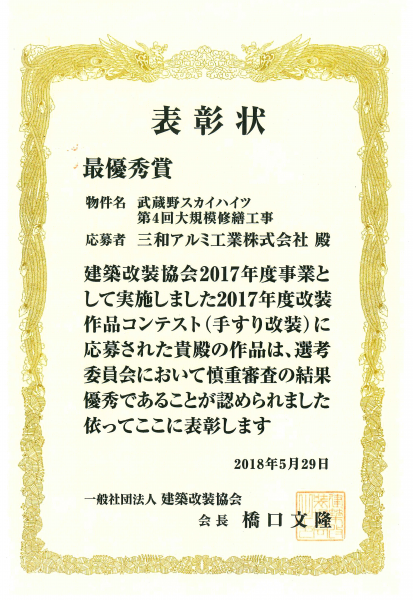 表彰状
最優秀賞
物件名 武蔵野スカイハイツ
第4回大規模修繕工事
応募者 三和アルミ工業株式会社 殿
建築改装協会2017年度事業と
して実施しました2017年度改装
作品コンテスト(手すり改装)に
応募された貴殿の作品は、選考
委員会において慎重審査の結果
優秀であることが認められました
依ってここに表彰します
2018年5月29日
一般社団法人 建築改装協会
会長 橋口文隆